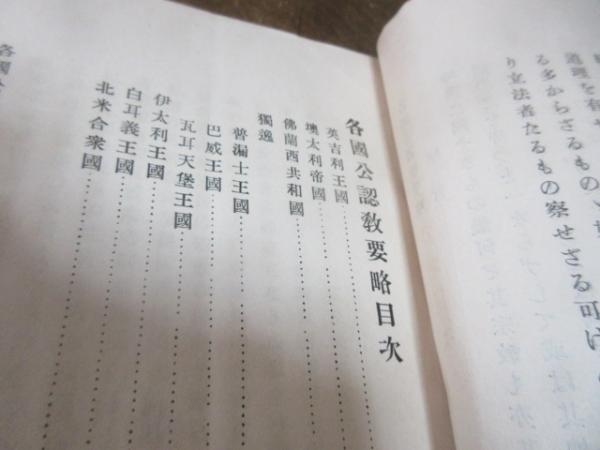 道理を有せ
る多からざるもの
り立法者たるもの察せざる可け
各國公認教要略目次
英吉利王國
墺太利帝國
佛蘭西共和國
獨逸
普漏士王國
巴威王國
瓦耳天堡王國
伊太利王國
白耳義王國
北米合衆國
各國公